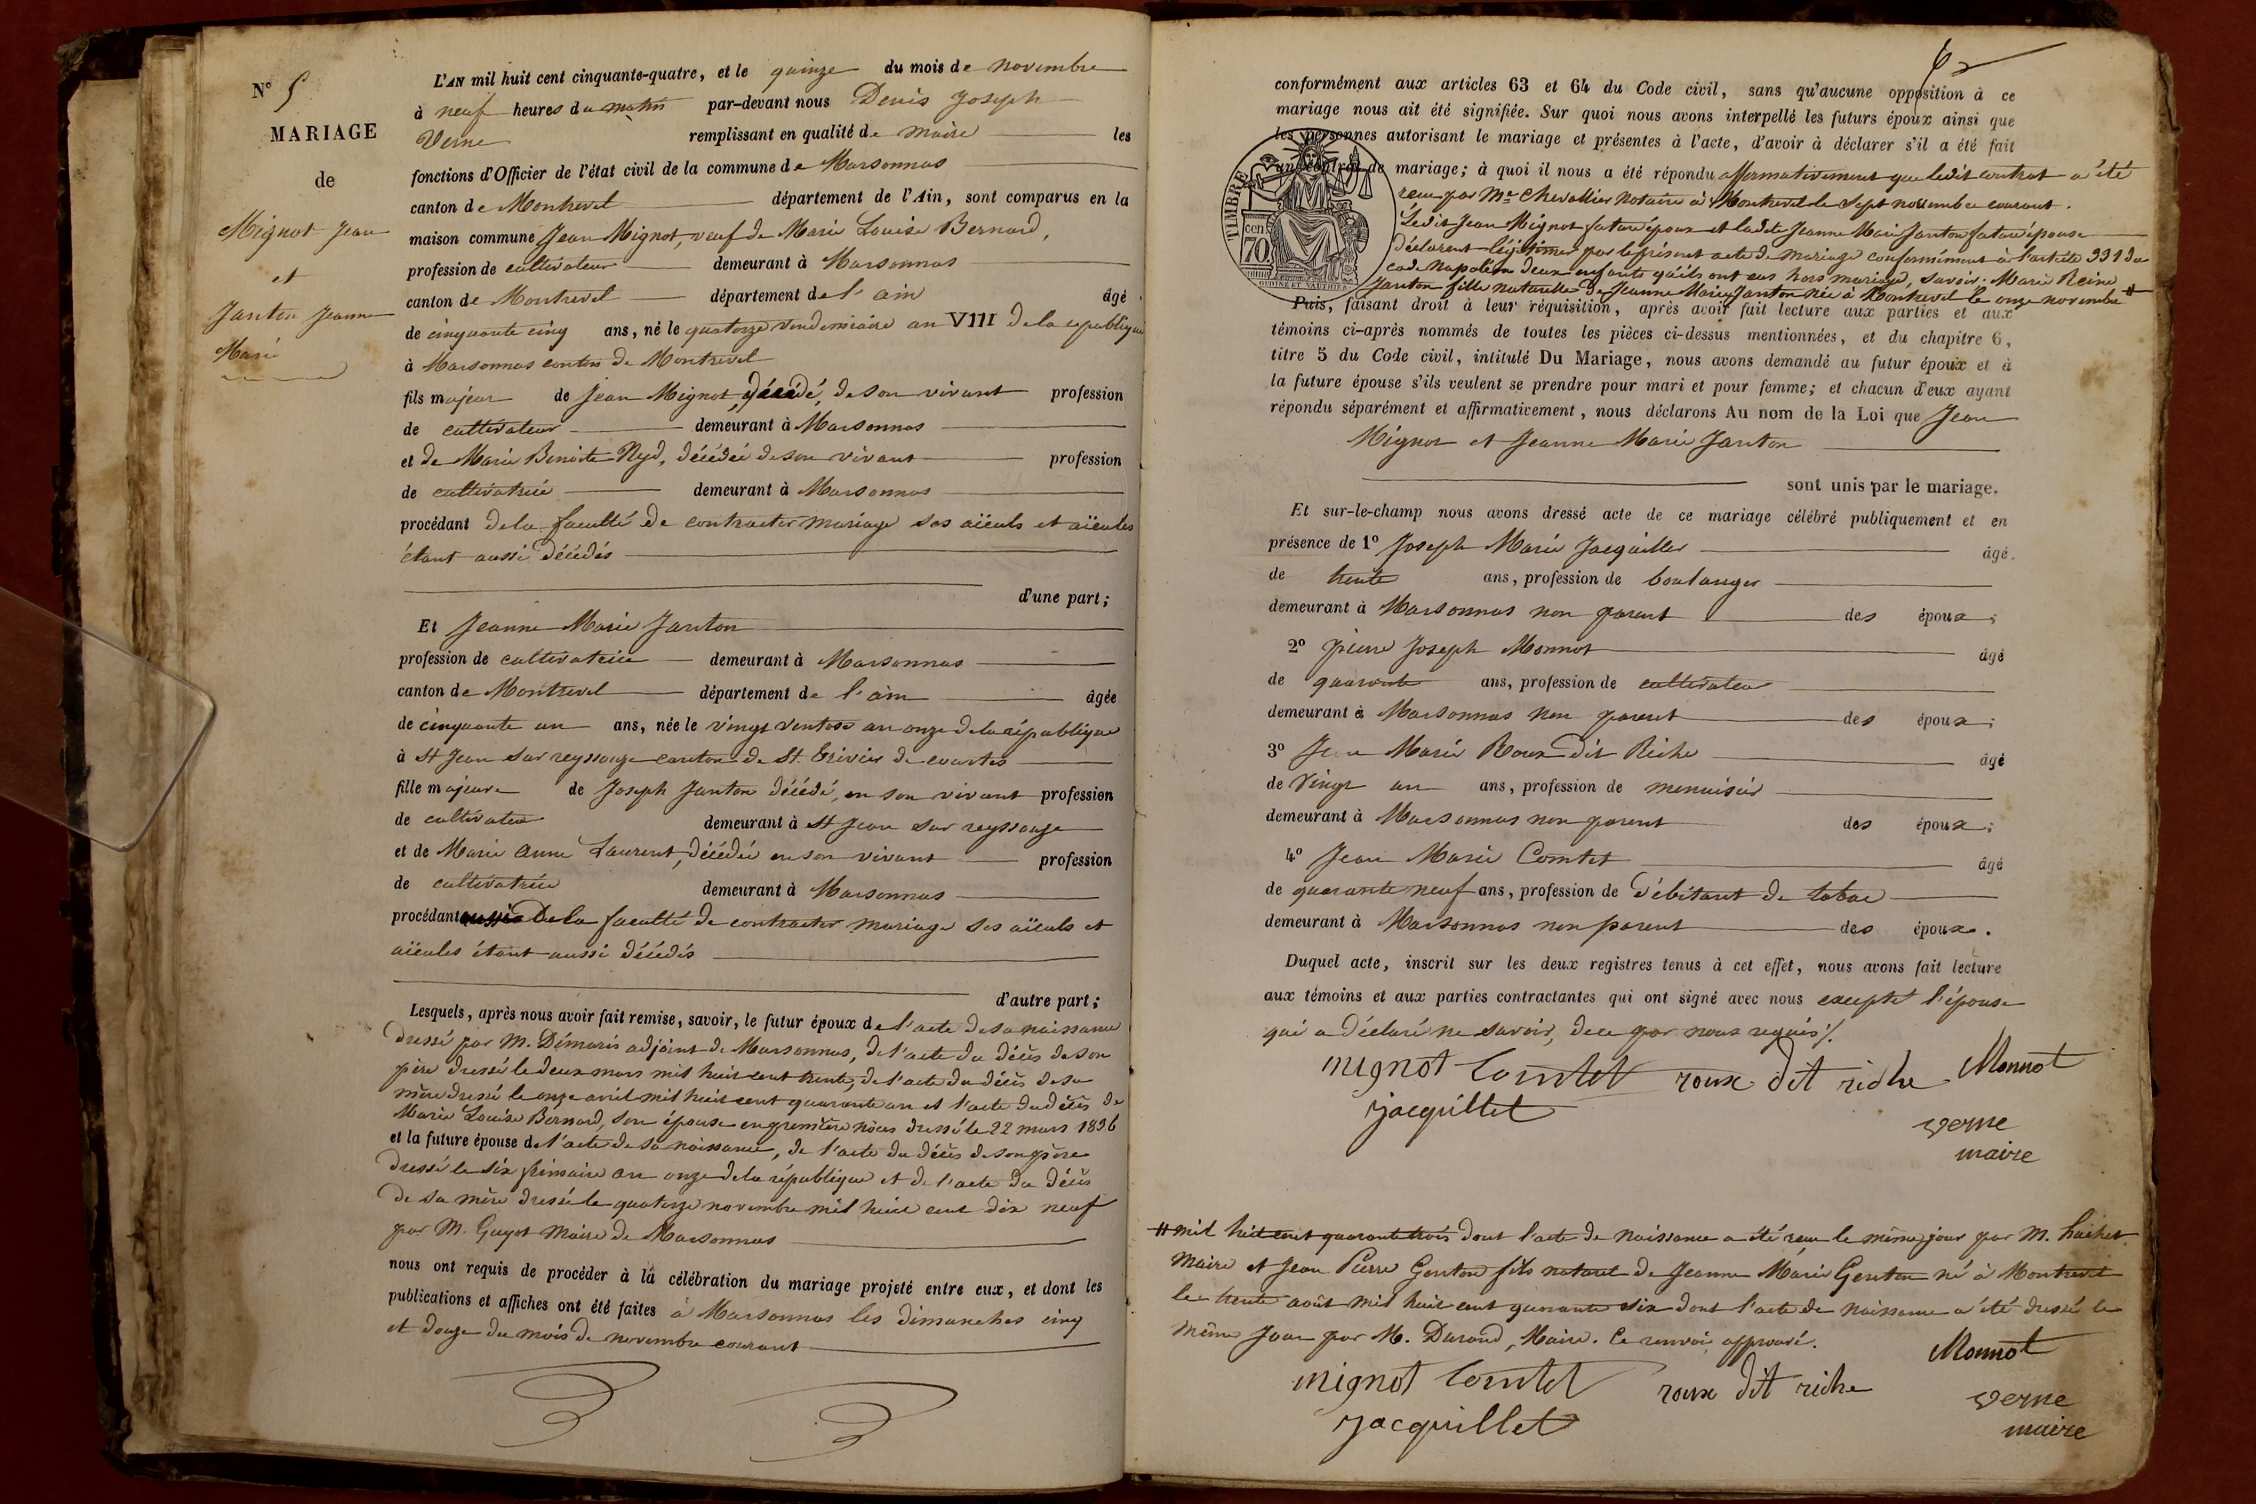 N° 5
MARIAGE
de
Mignot Jean
et
Janton Jeanne
Marie
L'AN mil huit cent cinquante-quatre, et le quinze du mois de novembre
à neuf heures du matin par-devant nous Denis Joseph
Verne remplissant en qualité de maire les
fonctions d'Officier de l'état civil de la commune de Marsonnas
canton de Montrevel département de l'Ain, sont comparus en la
maison commune Jean Mignot, veuf de Marie Louise Bernard,
profession de cultivateur demeurant à Marsonnas
canton de Montrevel département de l'ain âgé
de cinquante cinq ans, né le quatorze vendemiaire an VIII de la republique
à Marsonnas canton de Montrevel
fils majeur de Jean Mignot, décédé, de son vivant profession
de cultivateur demeurant à Marsonnas
et de Marie Benoite Nyd, décédée de son vivant profession
de cultivatrice demeurant à Marsonnas
procédant de la faculté de contracter mariage ses aïeuls et aïeules
étant aussi décédés
d'une part;
Et Jeanne Marie Janton
profession de cultivatrice demeurant à Marsonnas
canton de Montrevel département de l'ain âgée
de cinquante un ans, née le vingt ventose an onze de la république
à St Jean sur reyssouze canton de St Trivier de courtes
fille majeure de Joseph Janton décédé, en son vivant profession
de cultivateur demeurant à St Jean sur reyssouze
et de Marie Anne Laurent, décédée en son vivant profession
de cultivatrice demeurant à Marsonnas
procédant de la faculté de contracter mariage ses aïeuls et
aïeules étant aussi décédés
d'autre part;
Lesquels, après nous avoir fait remise, savoir, le futur époux de l'acte de sa naissance
dressé par M. Démaris adjoint de Marsonnas, de l'acte du décès de son
père dressé le deux mars mil huit cent trente, de l'acte du décès de sa
mère dressé le onze avril mil huit cent quarante un et l'acte du décès de
Marie Louise Bernard, son épouse en première nôces dressé le 22 mars 1836
et la future épouse de l'acte de sa naissance, de l'acte du décès de son père
dressé le six frimaire an onze de la république et de l'acte du décès
de sa mère dressé le quatorze novembre mil huit cent dix neuf
par M. Guyot Maire de Marsonnas
nous ont requis de procéder à la célébration du mariage projeté entre eux, et dont les
publications et affiches ont été faites à Marsonnas les dimanches cinq
et douze du mois de novembre courant
conformément aux articles 63 et 64 du Code civil, sans qu'aucune opposition à ce
mariage nous ait été signifiée. Sur quoi nous avons interpellé les futurs époux ainsi que
les personnes autorisant le mariage et présentes à l'acte, d'avoir à déclarer s'il a été fait
un contrat de mariage; à quoi il nous a été répondu affirmativement que ledit contrat a été
reçu par Me Chevallier Notaire à Montrevel le sept novembre courant.
Ledit Jean Mignot futur époux et ladite Jeanne Marie Janton future épouse
déclarent légitimer par le présent acte de mariage conformément à l'article 331 du
code Napoléon deux enfants qu'ils ont eus hors mariage, savoir: Marie Reine
Janton fille naturelle de Jeanne Marie Janton née à Montrevel le onze novembre #
TIMBRE
70 cen
Puis, faisant droit à leur réquisition, après avoir fait lecture aux parties et aux
témoins ci-après nommés de toutes les pièces ci-dessus mentionnées, et du chapitre 6,
titre 5 du Code civil, intitulé Du Mariage, nous avons demandé au futur époux et à
la future épouse s'ils veulent se prendre pour mari et pour femme; et chacun d'eux ayant
répondu séparément et affirmativement, nous déclarons Au nom de la Loi que Jean
Mignot et Jeanne Marie Janton
sont unis par le mariage.
Et sur-le-champ nous avons dressé acte de ce mariage célébré publiquement et en
présence de 1° Joseph Marie Jacquillet âgé
de trente ans, profession de boulanger
demeurant à Marsonnas non parent des époux;
2° pierre Joseph Monnot âgé
de quarante ans, profession de cultivateur
demeurant à Marsonnas non parent des époux;
3° Jean Marie Roux dit Riche âgé
de vingt un ans, profession de menuisier
demeurant à Marsonnas non parent des époux;
4° Jean Marie Comtet âgé
de quarante neuf ans, profession de débitant de tabac
demeurant à Marsonnas non parent des époux.
Duquel acte, inscrit sur les deux registres tenus à cet effet, nous avons fait lecture
aux témoins et aux parties contractantes qui ont signé avec nous excepté l'épouse
qui a déclaré ne savoir, de ce par nous requis ./.
mignot Comtet roux dit riche Monnot
jacquillet
verne
maire
# mil huit cent quarante trois dont l'acte de naissance a été reçu le même jour par M.
Maire et Jean Pierre Genton fils naturel de Jeanne Marie Genton né à Montrevel
le trente août mil huit cent quarante six dont l'acte de naissance a été dressé le
même Jour par M. Durand, Maire. Ce renvoi approuvé.
Monnot
mignot Comtet roux dit riche
verne
maire
jacquillet